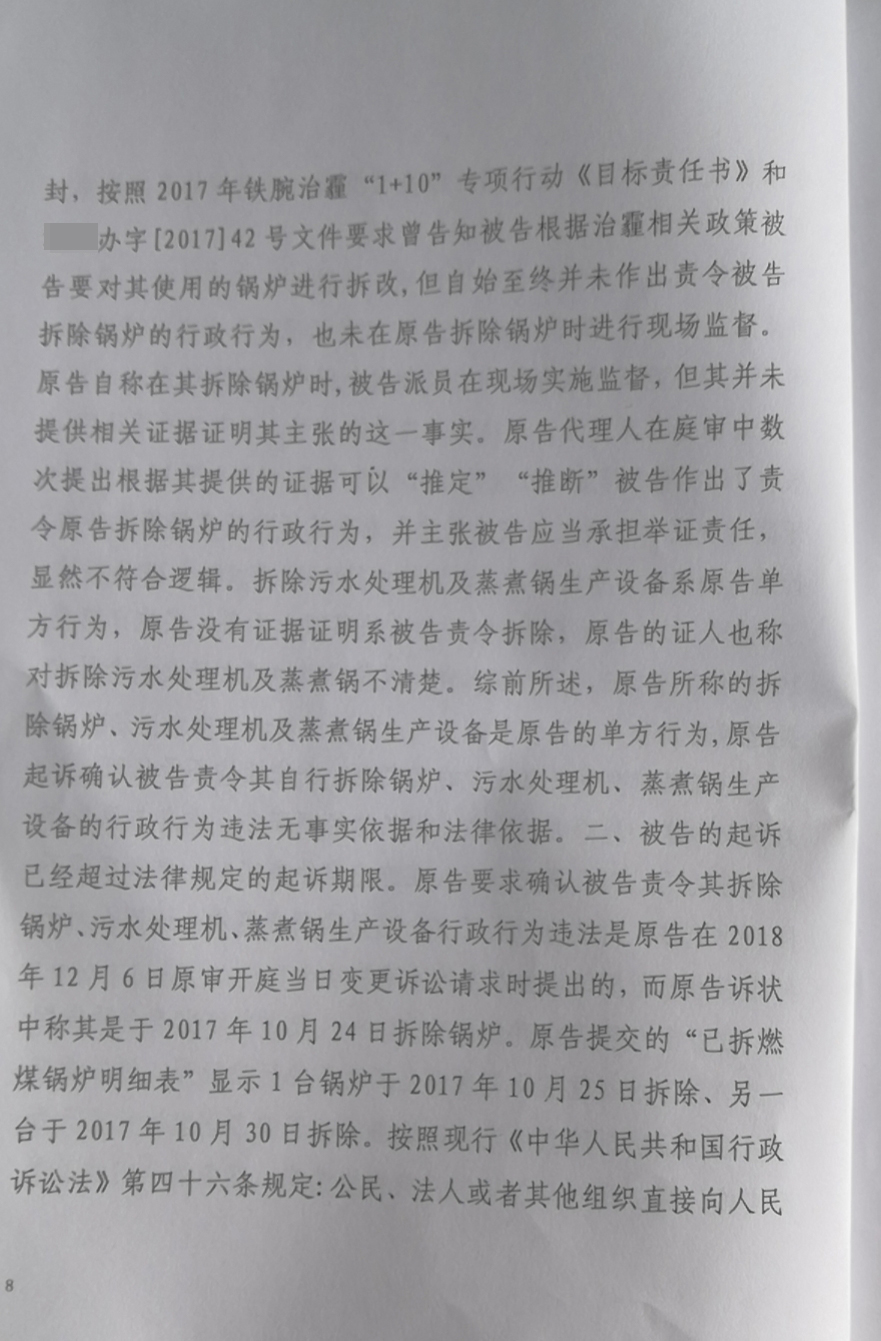 封，按照 2017 年铁腕治霾“1+10”专项行动《目标责任书》和
办字[2017]42 号文件要求曾告知被告根据治霾相关政策被
告要对其使用的锅炉进行拆改,但自始至终并未作出责令被告
拆除锅炉的行政行为，也未在原告拆除锅炉时进行现场监督。
原告自称在其拆除锅炉时,被告派员在现场实施监督，但其并未
提供相关证据证明其主张的这一事实。原告代理人在庭审中数
次提出根据其提供的证据可以“推定”“推断”被告作出了责
令原告拆除锅炉的行政行为，并主张被告应当承担举证责任，
显然不符合逻辑。拆除污水处理机及蒸煮锅生产设备系原告单
方行为，原告没有证据证明系被告责令拆除，原告的证人也称
对拆除污水处理机及蒸煮锅不清楚。综前所述，原告所称的拆
除锅炉、污水处理机及蒸煮锅生产设备是原告的单方行为,原告
起诉确认被告责令其自行拆除锅炉、污水处理机、蒸煮锅生产
设备的行政行为违法无事实依据和法律依据。二、被告的起诉
已经超过法律规定的起诉期限。原告要求确认被告责令其拆除
锅炉、污水处理机、蒸煮锅生产设备行政行为违法是原告在 2018
年 12 月 6 日原审开庭当日变更诉讼请求时提出的，而原告诉状
中称其是于 2017 年 10 月 24 日拆除锅炉。原告提交的“已拆燃
煤锅炉明细表”显示 1 台锅炉于 2017 年 10 月 25 日拆除、另一
台于 2017 年 10 月 30 日拆除。按照现行《中华人民共和国行政
诉讼法》第四十六条规定:公民、法人或者其他组织直接向人民
8